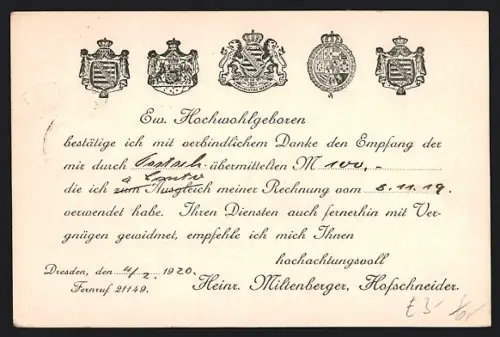 Ew. Hochwohlgeboren
bestätige ich mit verbindlichem Danke den Empfang der
mir durch Postsch. übermittelten M 100,-
à Conto
die ich zum Ausgleich meiner Rechnung vom 6.11.19.
verwendet habe. Ihren Diensten auch fernerhin mit Ver-
gnügen gewidmet, empfehle ich mich Ihnen
hochachtungsvoll
Dresden, den 4/2. 1920.
Heinr. Miltenberger, Hofschneider.
Fernruf 21149.